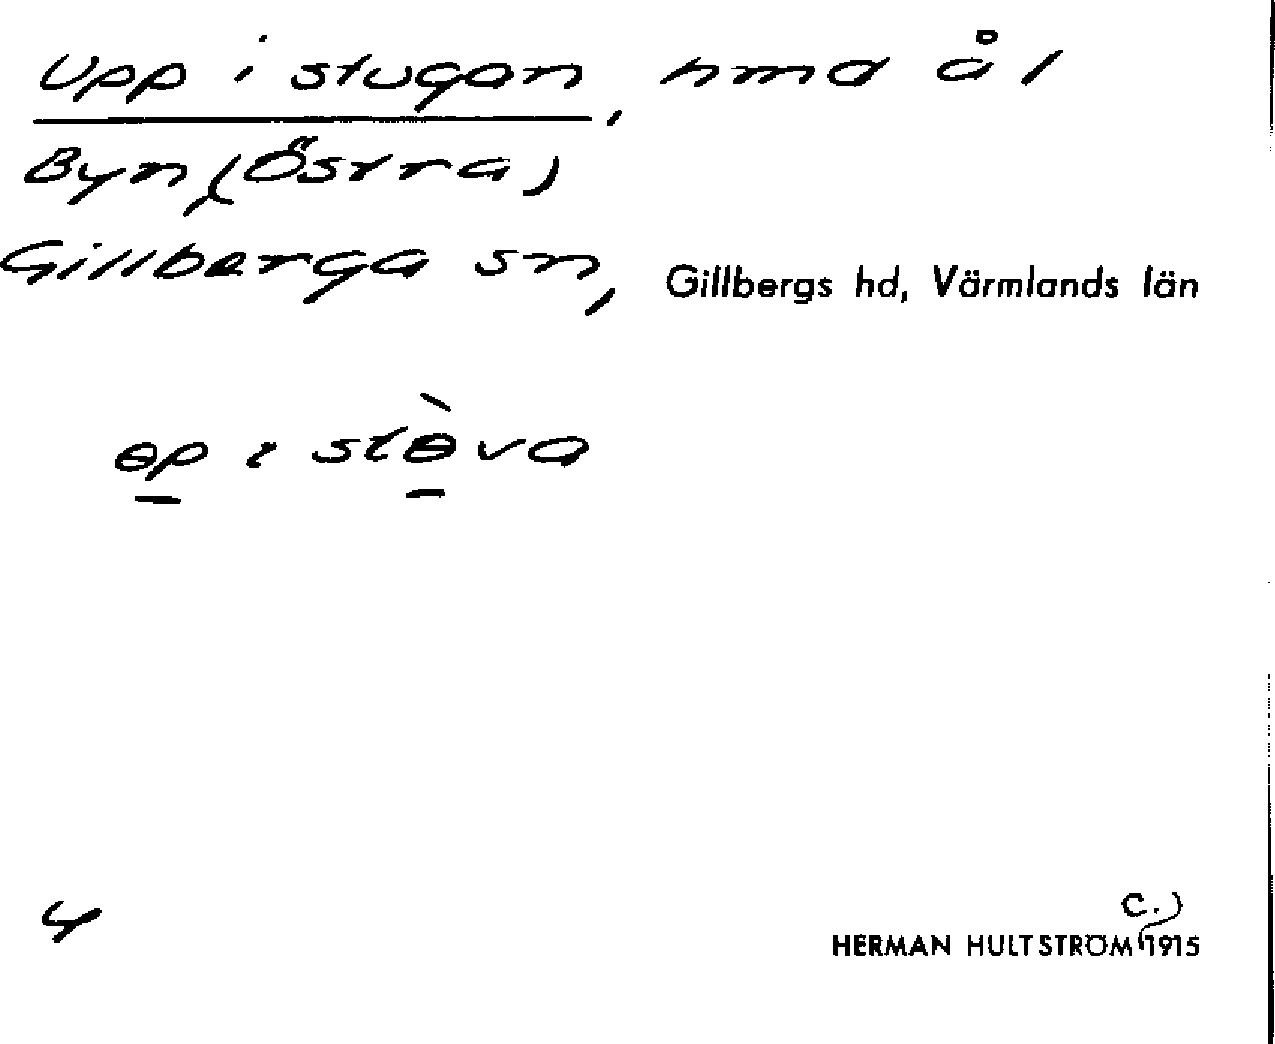 Upp i stugan, hmd ål
Byn (Östra)
Gillberga sn, Gillbergs hd, Värmlands län
ɵp ɩ stɵ̀va
4
c.)
HERMAN HULTSTRÖM 1915